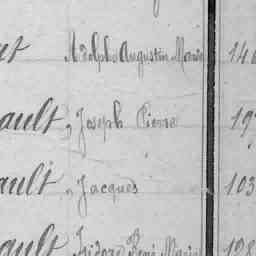 at Adolphe Augustin Marie 140
ault, Joseph Pierre 19
ault, Jacques 103
ault, Isidore René Marie 128